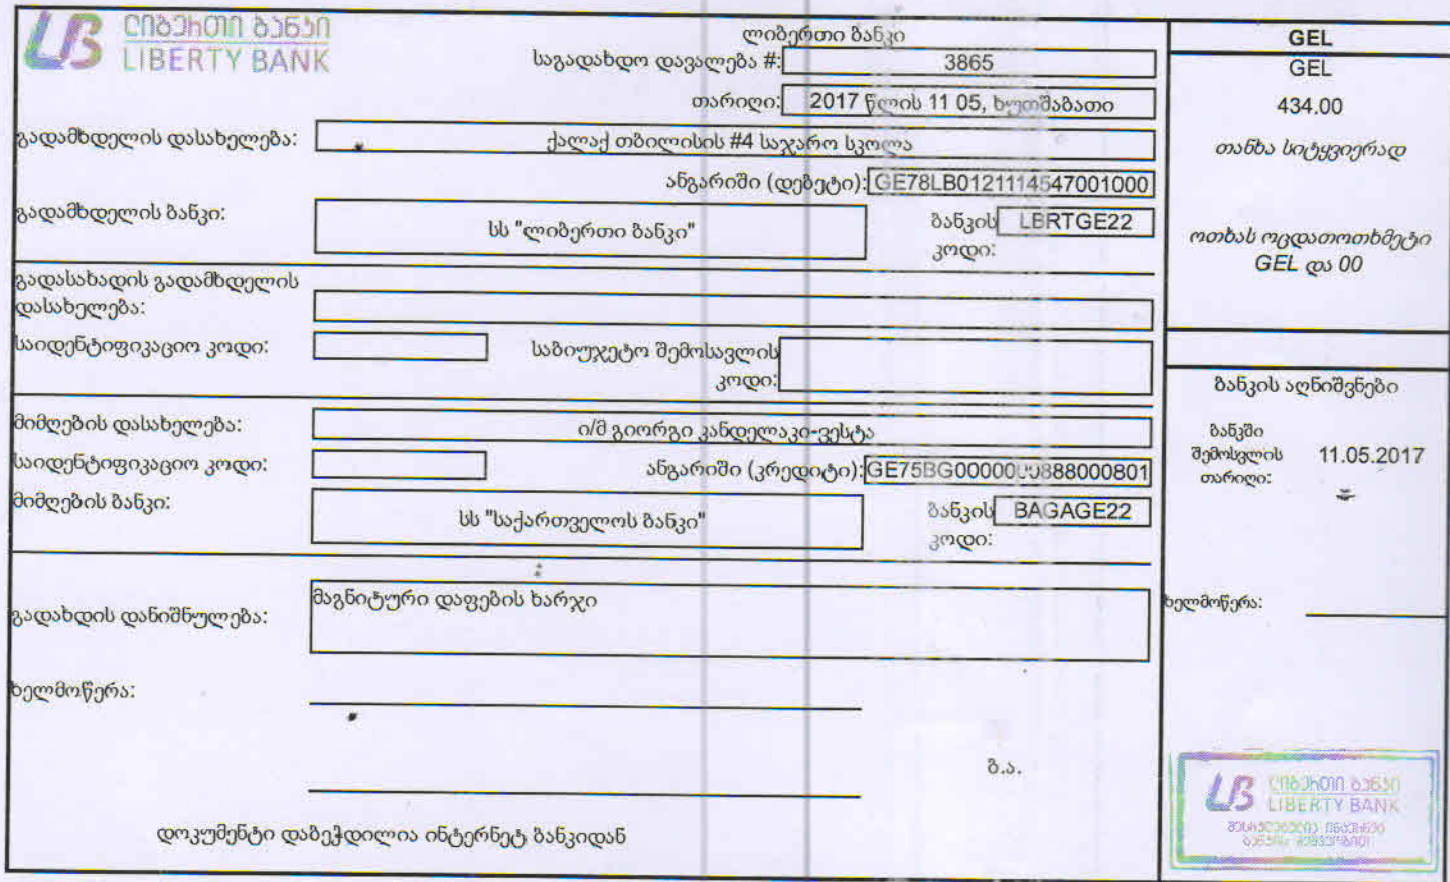 ლიბერთი ბანკი
LIBERTY BANK
ლიბერთი ბანკი
საგადახდო დავალება #: 3865
თარიღი: 2017 წლის 11 05, ხუთშაბათი
გადამხდელის დასახელება: ქალაქ თბილისის #4 საჯარო სკოლა
ანგარიში (დებეტი): GE78LB0121114547001000
გადამხდელის ბანკი: სს "ლიბერთი ბანკი" ბანკის კოდი: LBRTGE22
გადასახადის გადამხდელის
დასახელება:
საიდენტიფიკაციო კოდი: საბიუჯეტო შემოსავლის
კოდი:
მიმღების დასახელება: ი/მ გიორგი კანდელაკი-ვესტა
საიდენტიფიკაციო კოდი: ანგარიში (კრედიტი): GE75BG0000000888000801
მიმღების ბანკი: სს "საქართველოს ბანკი" ბანკის კოდი: BAGAGE22
გადახდის დანიშნულება: მაგნიტური დაფების ხარჯი
ხელმოწერა:
ბ.ა.
დოკუმენტი დაბეჭდილია ინტერნეტ ბანკიდან
GEL
GEL
434.00
თანხა სიტყვიერად
ოთხას ოცდათოთხმეტი
GEL და 00
ბანკის აღნიშვნები
ბანკში
შემოსვლის 11.05.2017
თარიღი:
ხელმოწერა:
ლიბერთი ბანკი
LIBERTY BANK